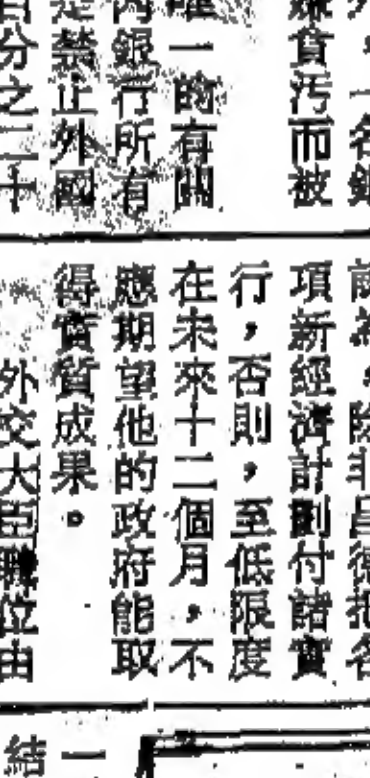 嫌貪污而被
唯一的有關
內銀行所有
是禁止外國
百分之二十
認為，除非昌德把各
項新經濟計劃付諸實
行，否則，至低限度
在未來十二個月，不
應期望他的政府能取
得實質成果。
外交大臣職位由
一
結